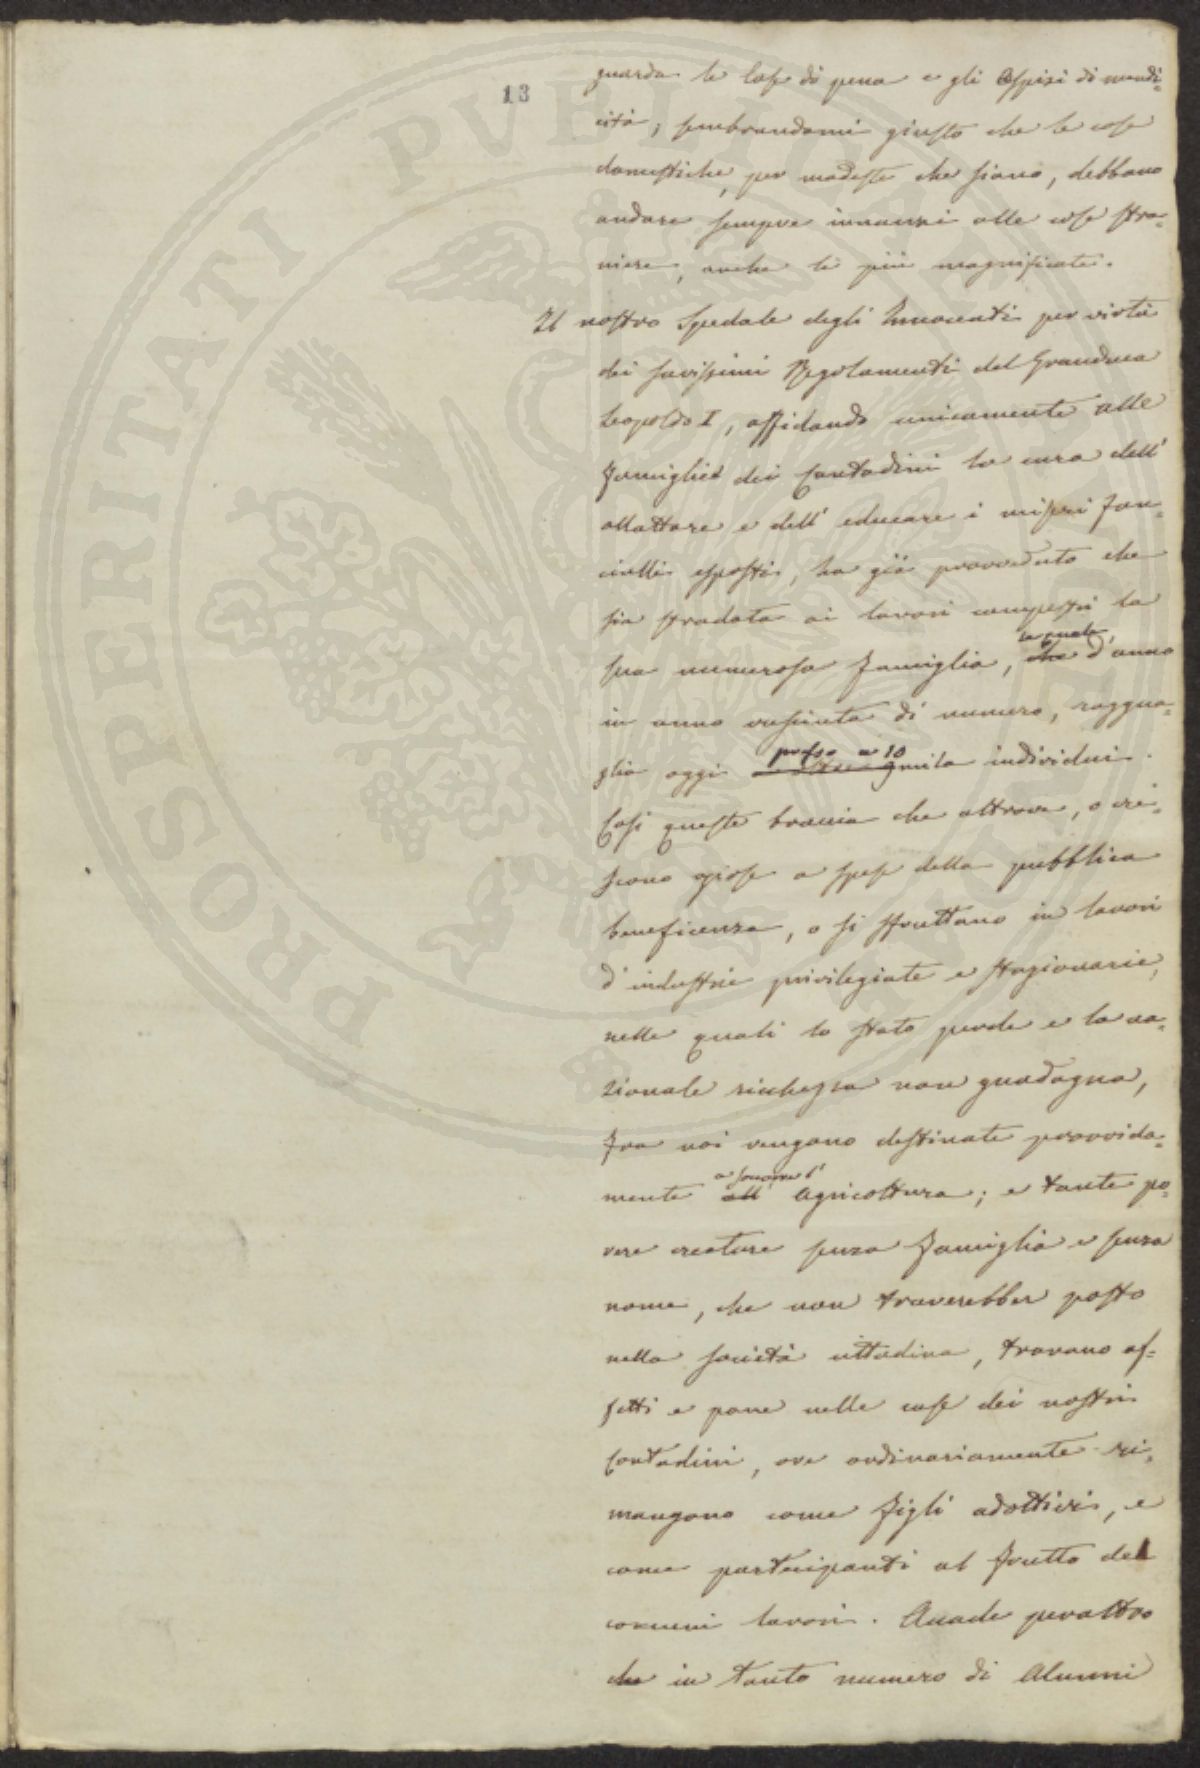 13
guarda le Case di pena e gli Ospizi di mendi=
cità, sembrandomi giusto che le cose
domestiche, per modeste che siano, debbano
andare sempre innanzi alle cose stra=
niere, anche le più magnificate.
Il nostro Spedale degli Innocenti per virtù
dei savissimi Regolamenti del Granduca
Leopoldo I, affidando unicamente alle
famiglie dei Contadini la cura dell'
allattare e dell' educare i miseri fan=
ciulli esposti, ha già provveduto che
sia stradata ai lavori campestri la
sua numerosa famiglia, la quale, che d'anno
in anno cresciuta di numero, raggua=
glia oggi presso a 10 mila individui.
Così queste braccia che altrove, o cre=
scono oziose a spese della pubblica
beneficenza, o si sfruttano in lavori
d' industrie privilegiate e stazionarie,
nelle quali lo stato perde e la na=
zionale ricchezza non guadagna,
fra noi vengono destinate provvida=
mente a soccorrer l' all' Agricoltura; e tante po=
vere creature senza famiglia e senza
nome, che non troverebber posto
nella società cittadina, trovano af=
fetti e pane nelle case dei nostri
Contadini, ove ordinariamente ri=
mangono come figli adottivi, e
come partecipanti al frutto dei
comuni lavori. Accade peraltro
che in tanto numero di Alunni
PROSPERITATI PVBLICAE